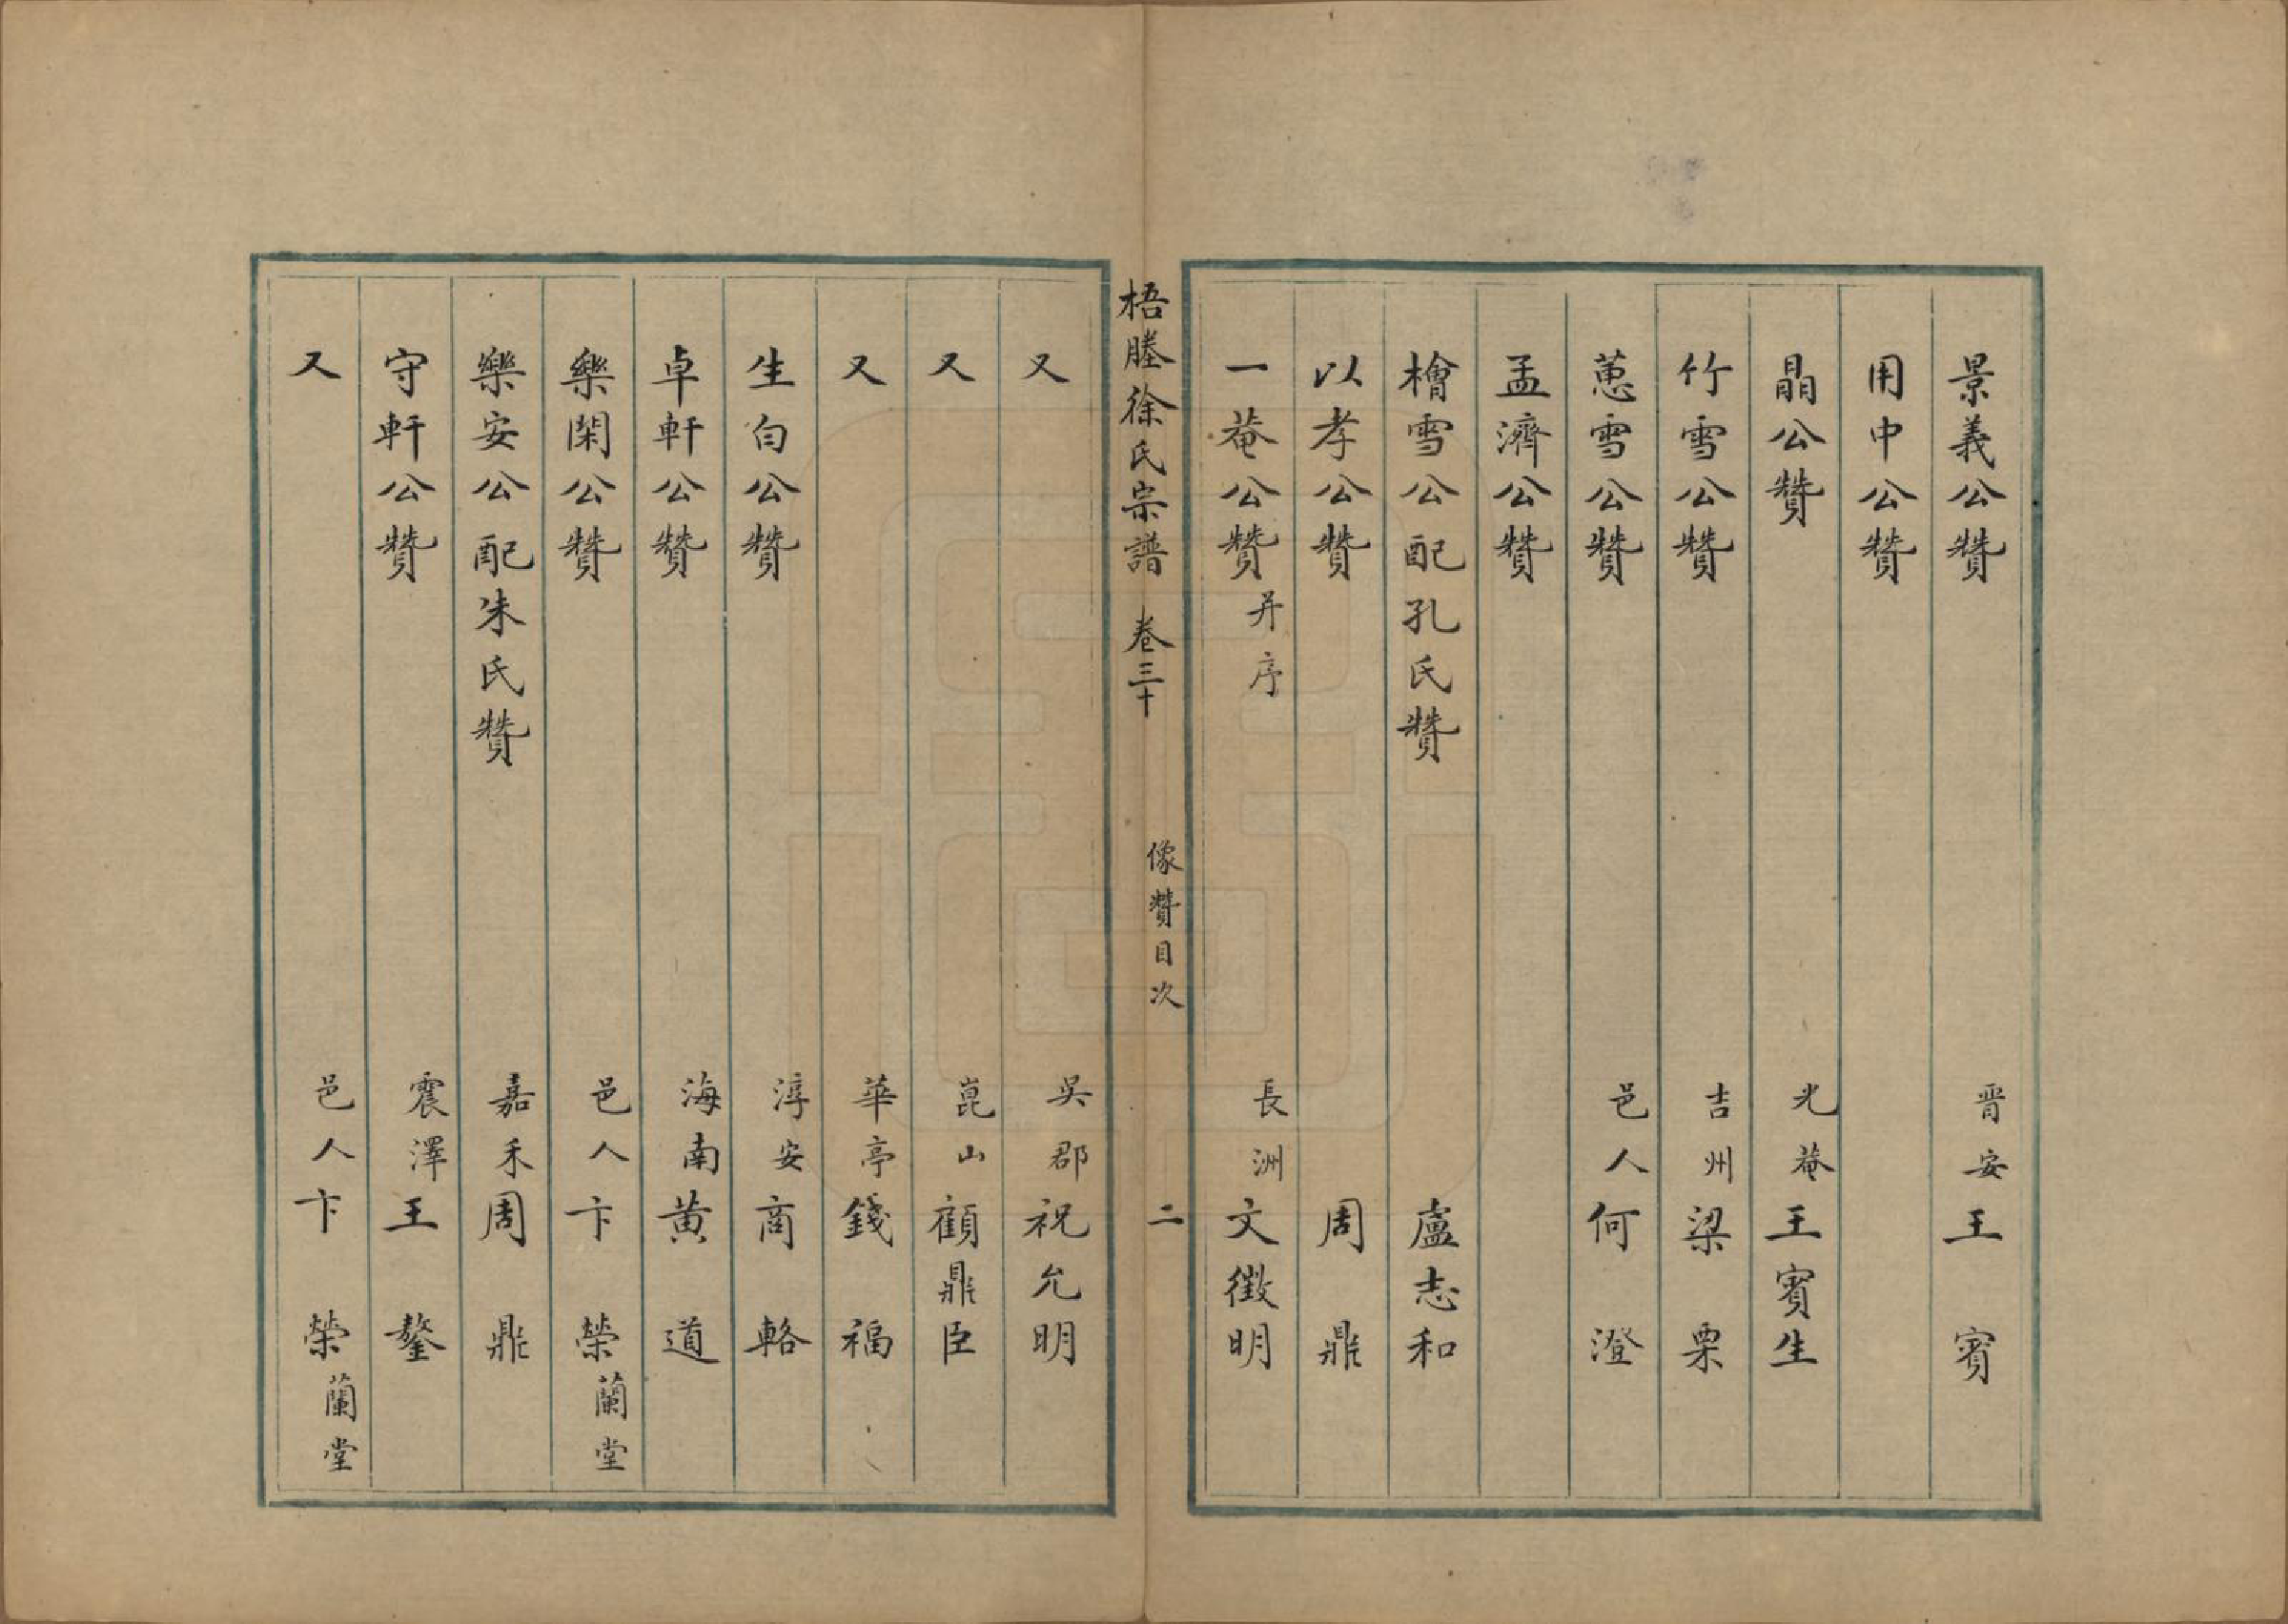 景義公贊 晋安王賓
用中公贊
晶公贊 光菴王賓生
竹雪公贊 吉州梁栗
蕙雪公贊 邑人何澄
孟濟公贊
檜雪公配孔氏贊 盧志和
以孝公贊 周鼎
一菴公贊并序 長洲文徵明
梧塍徐氏宗譜 卷三十 像贊目次 二
又 吳郡祝允明
又 崑山顧鼎臣
又 華亭錢福
生白公贊 淳安商輅
卓軒公贊 海南黃道
樂閑公贊 邑人卞榮蘭堂
樂安公配朱氏贊 嘉禾周鼎
守軒公贊 震澤王鏊
又 邑人卞榮蘭堂